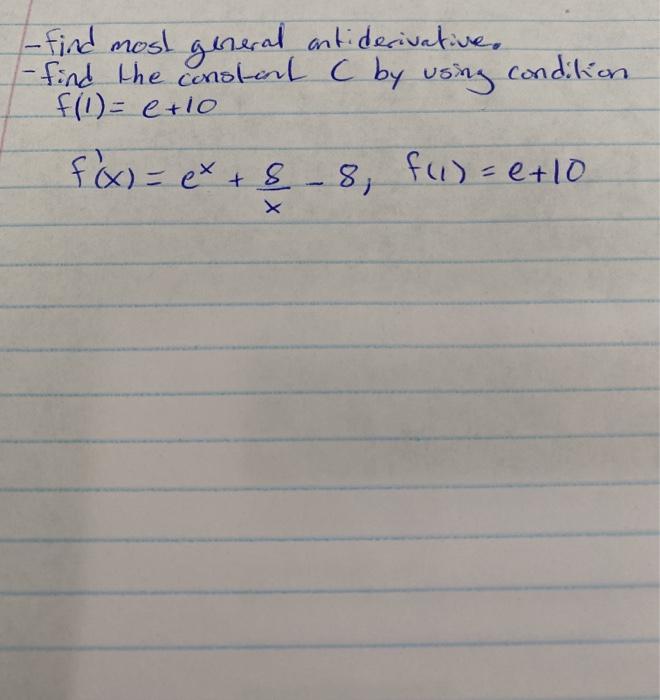 -find most general antiderivative.
-find the constant C by using condition
f(1) = e+10
f'(x) = e^x + 8/x - 8, f(1) = e+10